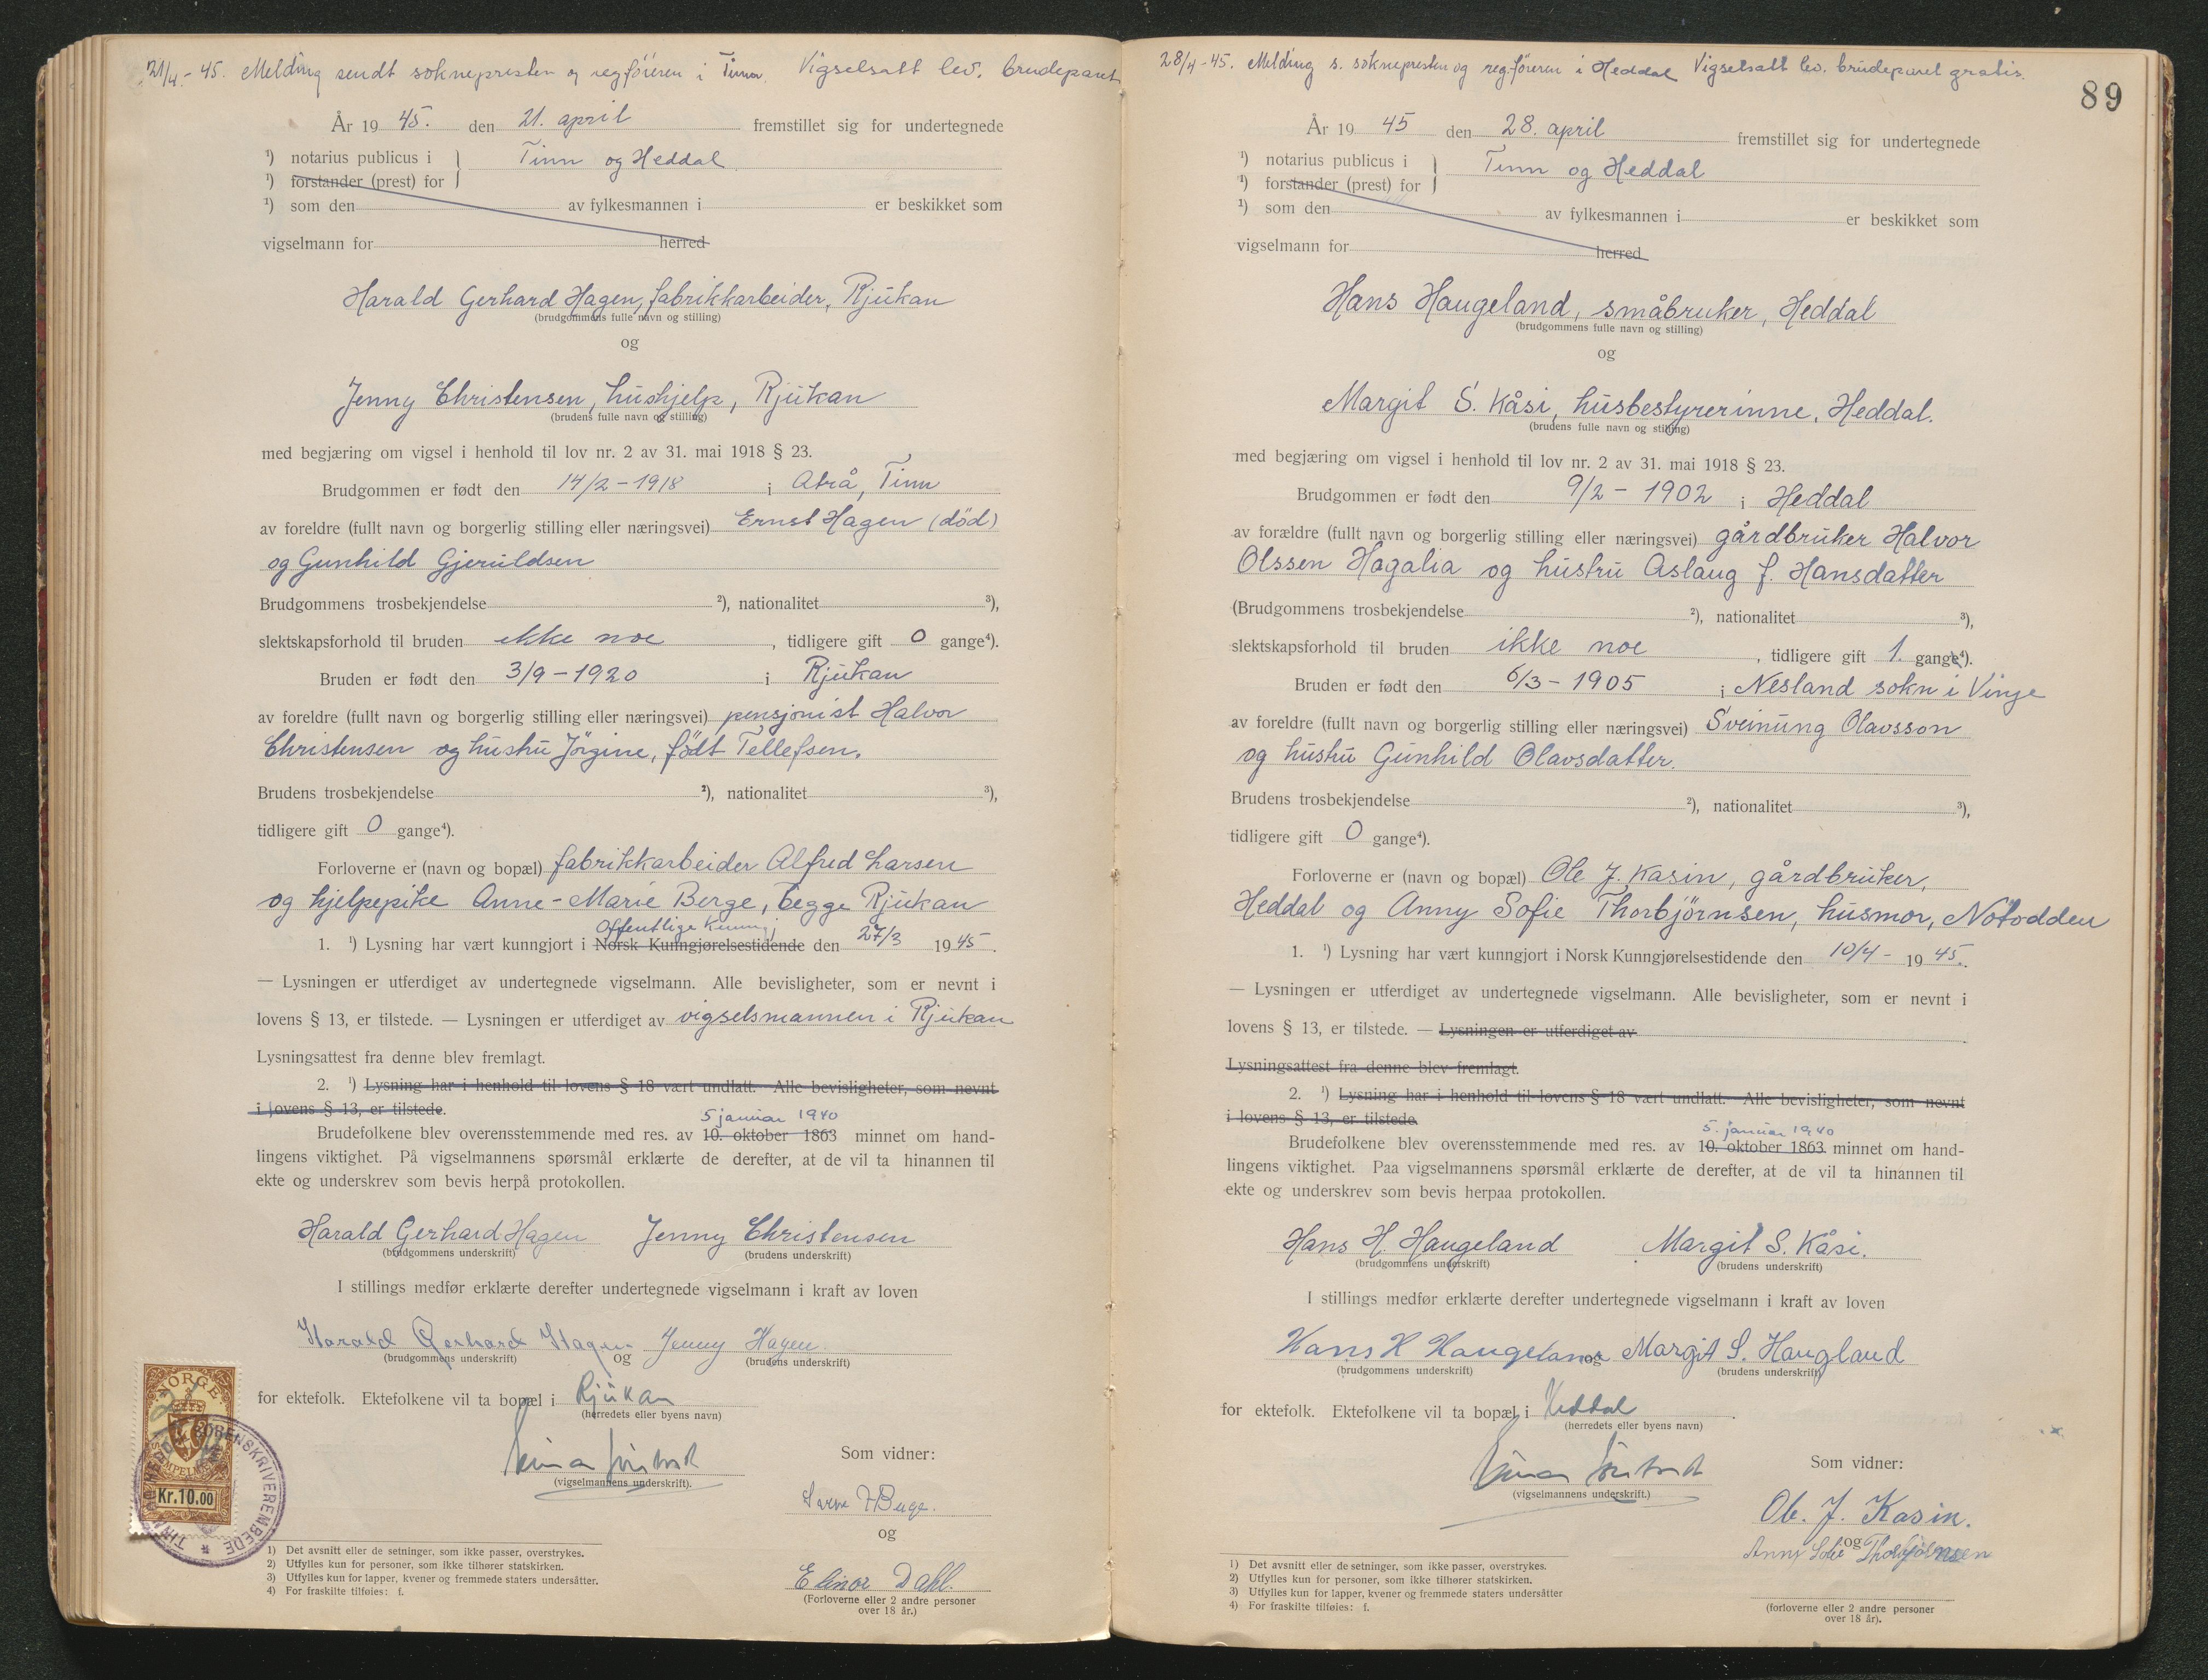 21/4 - 45. Melding sendt soknepresten og regføreren i Tinn. Vigselsatt lev. brudeparet
År 19 45. den 21. april fremstillet sig for undertegnede
¹) notarius publicus i } Tinn og Heddal
¹) forstander (prest) for
¹) som den av fylkesmannen i er beskikket som
vigselmann for herred
Harald Gerhard Hagen, fabrikkarbeider, Rjukan
(brudgommens fulle navn og stilling)
og
Jenny Christensen, hushjelp, Rjukan
(brudens fulle navn og stilling)
med begjæring om vigsel i henhold til lov nr. 2 av 31. mai 1918 § 23.
Brudgommen er født den 14/2 - 1918 i Atrå, Tinn
av foreldre (fullt navn og borgerlig stilling eller næringsvei) Ernst Hagen (död)
og Gunhild Gjeruldsen
Brudgommens trosbekjendelse ²), nationalitet ³),
slektskapsforhold til bruden ikke noe , tidligere gift 0 gange⁴).
Bruden er født den 3/9 - 1920 i Rjukan
av foreldre (fullt navn og borgerlig stilling eller næringsvei) pensjonist Halvor
Christensen og hustru Jörgine, födt Tellefsen.
Brudens trosbekjendelse ²), nationalitet ³),
tidligere gift 0 gange⁴).
Forloverne er (navn og bopæl) fabrikkarbeider Alfred Larsen
og hjelpepike Anne-Marie Berge, begge Rjukan
Offentlige Kunngj
1. ¹) Lysning har vært kunngjort i Norsk Kunngjørelsestidende den 27/3 1945.
— Lysningen er utferdiget av undertegnede vigselmann. Alle bevisligheter, som er nevnt i
lovens § 13, er tilstede. — Lysningen er utferdiget av vigselsmannen i Rjukan
Lysningsattest fra denne blev fremlagt.
2. ¹) Lysning har i henhold til lovens § 18 vært undlatt. Alle bevisligheter, som nevnt
i lovens § 13, er tilstede.
5 januar 1940
Brudefolkene blev overensstemmende med res. av 10. oktober 1863 minnet om hand-
lingens viktighet. På vigselmannens spørsmål erklærte de derefter, at de vil ta hinannen til
ekte og underskrev som bevis herpå protokollen.
Harald Gerhard Hagen Jenny Christensen
(brudgommens underskrift) (brudens underskrift)
I stillings medfør erklærte derefter undertegnede vigselmann i kraft av loven
Harald Gerhard Hagen og Jenny Hagen.
(brudgommens underskrift) (brudens underskrift)
for ektefolk. Ektefolkene vil ta bopæl i Rjukan
(herredets eller byens navn)
(vigselmannens underskrift).
Som vidner:
og
Elinor Dahl.
(Forloverne eller 2 andre personer
over 18 år.)
NORGE
STEMPELMERKE
Kr.10.00
SORENSKRIVEREMBEDE
1) Det avsnitt eller de setninger, som ikke passer, overstrykes.
2) Utfylles kun for personer, som ikke tilhører statskirken.
3) Utfylles kun for lapper, kvener og fremmede staters undersåtter.
4) For fraskilte tilføies: f.
28/4 - 45. Melding s. soknepresten og reg.föreren i Heddal Vigselsatt lev. brudeparet gratis.
89
År 19 45 den 28. april fremstillet sig for undertegnede
¹) notarius publicus i } Tinn og Heddal
¹) forstander (prest) for
¹) som den av fylkesmannen i er beskikket som
vigselmann for herred
Hans Haugeland, småbruker, Heddal
(brudgommens fulle navn og stilling)
og
Margit S. Kåsi, husbestyrerinne, Heddal.
(brudens fulle navn og stilling)
med begjæring om vigsel i henhold til lov nr. 2 av 31. mai 1918 § 23.
Brudgommen er født den 9/2 - 1902 i Heddal
av forældre (fullt navn og borgerlig stilling eller næringsvei) gårdbruker Halvor
Olssen Hagalia og hustru Aslaug f. Hansdatter
(Brudgommens trosbekjendelse ²), nationalitet ³),
slektskapsforhold til bruden ikke noe , tidligere gift 1. gange⁴).
Bruden er født den 6/3 - 1905 i Nesland sokn i Vinje
av foreldre (fullt navn og borgerlig stilling eller næringsvei) Sveinung Olavsson
og hustru Gunhild Olavsdatter.
Brudens trosbekjendelse ²), nationalitet ³),
tidligere gift 0 gange⁴).
Forloverne er (navn og bopæl) Ole J. Kasin, gårdbruker,
Heddal og Anny Sofie Thorbjörnsen, husmor, Notodden
1. ¹) Lysning har vært kunngjort i Norsk Kunngjørelsestidende den 10/4 - 19 45.
— Lysningen er utferdiget av undertegnede vigselmann. Alle bevisligheter, som er nevnt i
lovens § 13, er tilstede. — Lysningen er utferdiget av
Lysningsattest fra denne blev fremlagt.
2. ¹) Lysning har i henhold til lovens § 18 vært undlatt. Alle bevisligheter, som nevnt
i lovens § 13, er tilstede
5. januar 1940
Brudefolkene blev overensstemmende med res. av 10. oktober 1863 minnet om hand-
lingens viktighet. Paa vigselmannens spørsmål erklærte de derefter, at de vil ta hinannen til
ekte og underskrev som bevis herpaa protokollen.
Hans H. Haugeland Margit S. Kåsi.
(brudgommens underskrift) (brudens underskrift)
I stillings medfør erklærte derefter undertegnede vigselmann i kraft av loven
Hans H Haugeland og Margit S. Haugland
(brudgommens underskrift) (brudens underskrift)
for ektefolk. Ektefolkene vil ta bopæl i Heddal
(herredets eller byens navn)
(vigselmannens underskrift.)
Som vidner:
Ole. J. Kasin.
og
Anny Sofie Thorbjörnsen
(forloverne eller 2 andre personer
over 18 år).
1) Det avsnitt eller de setninger, som ikke passer, overstrykes.
2) Utfylles kun for personer, som ikke tilhører statskirken.
3) Utfylles kun for lapper, kvener og fremmede staters undersåtter
4) For fraskilte tilføies: f.